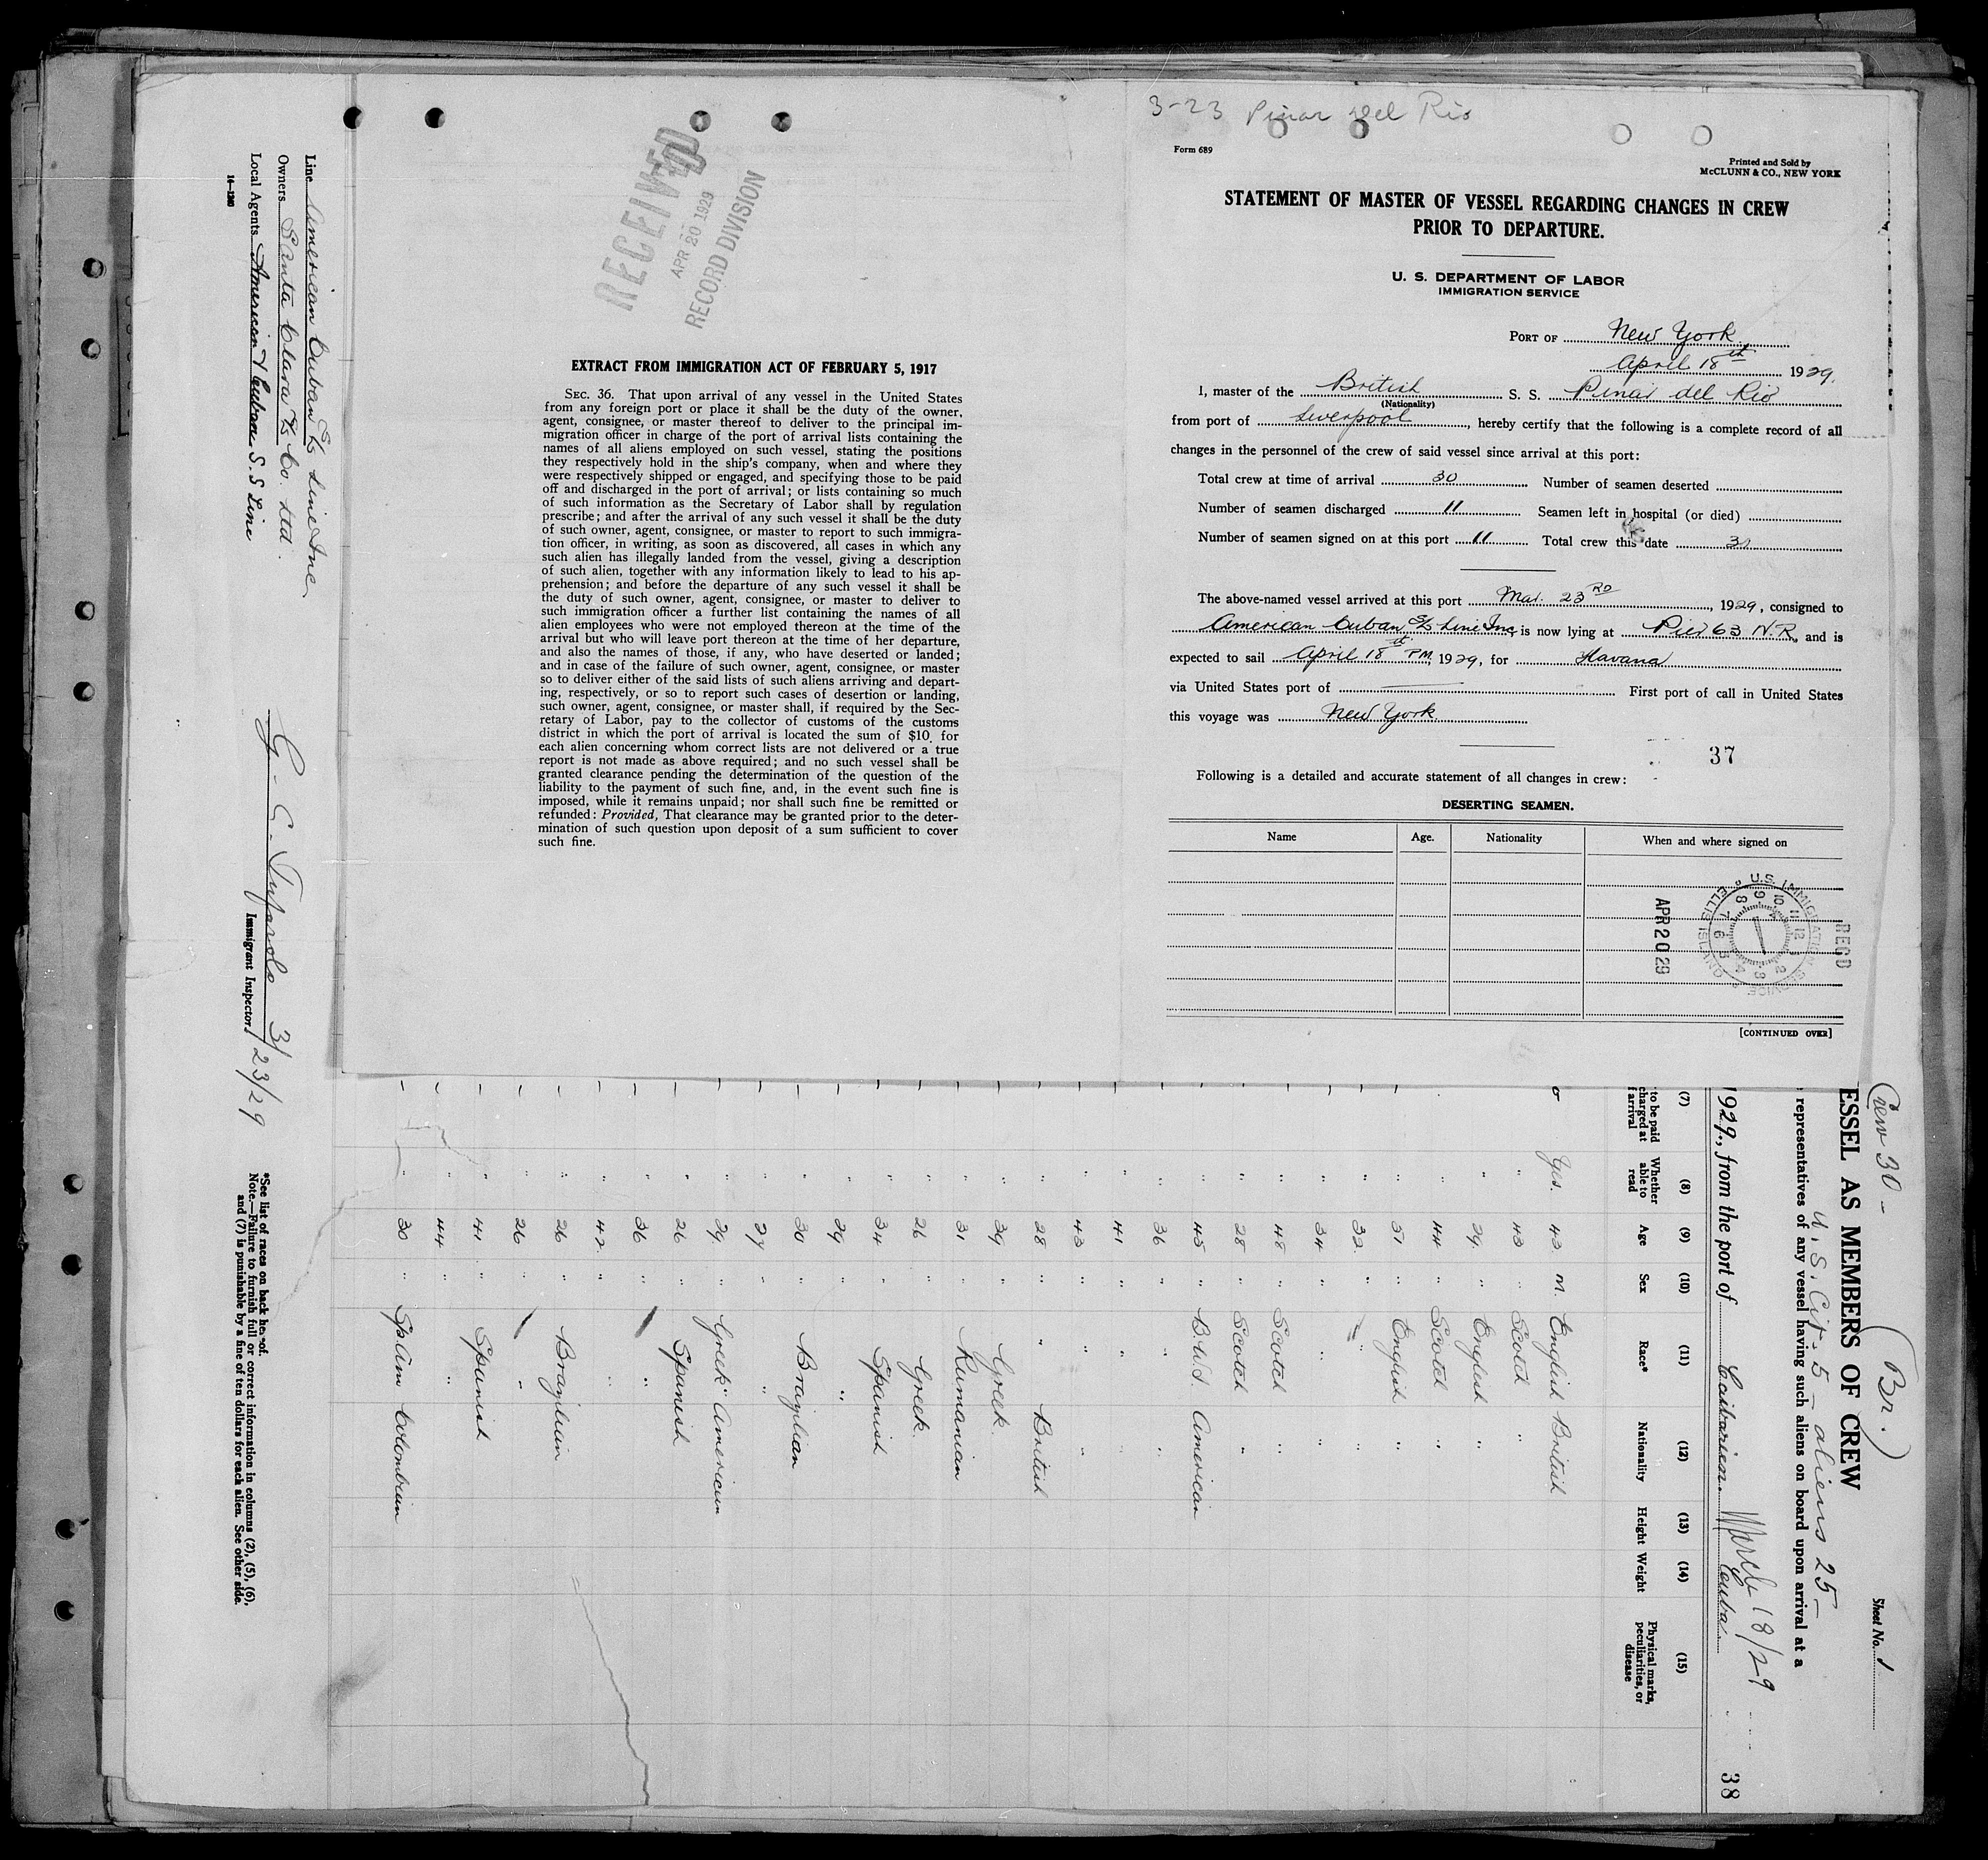 3-23 Pinar del Rio
Form 689
Printed and Sold by
McCLUNN & CO., NEW YORK
STATEMENT OF MASTER OF VESSEL REGARDING CHANGES IN CREW
PRIOR TO DEPARTURE.
U. S. DEPARTMENT OF LABOR
IMMIGRATION SERVICE
PORT OF New York
April 18th 1929.
I, master of the British S. S. Pinar del Rio
(Nationality)
from port of Liverpool, hereby certify that the following is a complete record of all
changes in the personnel of the crew of said vessel since arrival at this port:
Total crew at time of arrival 30 Number of seamen deserted
Number of seamen discharged 11 Seamen left in hospital (or died)
Number of seamen signed on at this port 11 Total crew this date 30
The above-named vessel arrived at this port Mar. 23RD, 1929, consigned to
American Cuban S/S Line Inc. is now lying at Pier 63 N.R. and is
expected to sail April 18th PM, 1929, for Havana
via United States port of First port of call in United States
this voyage was New York
37
Following is a detailed and accurate statement of all changes in crew:
DESERTING SEAMEN.
Name Age. Nationality When and where signed on
REC'D
APR 20 29
U.S. IMMIGRATION SERVICE
ELLIS ISLAND
[CONTINUED OVER]
RECEIVED
APR 20 1929
RECORD DIVISION
EXTRACT FROM IMMIGRATION ACT OF FEBRUARY 5, 1917
SEC. 36. That upon arrival of any vessel in the United States
from any foreign port or place it shall be the duty of the owner,
agent, consignee, or master thereof to deliver to the principal im-
migration officer in charge of the port of arrival lists containing the
names of all aliens employed on such vessel, stating the positions
they respectively hold in the ship's company, when and where they
were respectively shipped or engaged, and specifying those to be paid
off and discharged in the port of arrival; or lists containing so much
of such information as the Secretary of Labor shall by regulation
prescribe; and after the arrival of any such vessel it shall be the duty
of such owner, agent, consignee, or master to report to such immigra-
tion officer, in writing, as soon as discovered, all cases in which any
such alien has illegally landed from the vessel, giving a description
of such alien, together with any information likely to lead to his ap-
prehension; and before the departure of any such vessel it shall be
the duty of such owner, agent, consignee, or master to deliver to
such immigration officer a further list containing the names of all
alien employees who were not employed thereon at the time of the
arrival but who will leave port thereon at the time of her departure,
and also the names of those, if any, who have deserted or landed;
and in case of the failure of such owner, agent, consignee, or master
so to deliver either of the said lists of such aliens arriving and depart-
ing, respectively, or so to report such cases of desertion or landing,
such owner, agent, consignee, or master shall, if required by the Sec-
retary of Labor, pay to the collector of customs of the customs
district in which the port of arrival is located the sum of $10 for
each alien concerning whom correct lists are not delivered or a true
report is not made as above required; and no such vessel shall be
granted clearance pending the determination of the question of the
liability to the payment of such fine, and, in the event such fine is
imposed, while it remains unpaid; nor shall such fine be remitted or
refunded: Provided, That clearance may be granted prior to the deter-
mination of such question upon deposit of a sum sufficient to cover
such fine.
Crew 30 - (Br.) Sheet No. 1
ESSEL AS MEMBERS OF CREW
U.S. Cit. 5 - aliens 25 -
representatives of any vessel having such aliens on board upon arrival at a
March 18/29
1929, from the port of Caibarien Cuba 38
(7) (8) (9) (10) (11) (12) (13) (14) (15)
to be paid
charged at
f arrival
Whether
able to
read
Age Sex Race* Nationality Height Weight
Physical marks,
peculiarities, or
disease
Yes. 43 M. English British
" 43 " Scotch "
" 29 " English
" 44 " Scotch "
" 51 " English "
" 32 " " "
" 34 " " "
" 48 " Scotch "
" 28 " Scotch "
" 45 " B.W.I. American
" 36 " " "
" 41 " " "
" 43 " " "
" 28 " " British
" 39 " Greek
" 31 " Rumanian
" 26 " Greek
" 34 " Spanish
" 29 "
" 30 " Brazilian
" 27 " "
" 29 " Greek American
" 26 " Spanish
" 36 " "
" 42 " "
" 26 " Brazilian
" 26 "
" 41 " Spanish
" 44 " "
" 30 " Span Colombian
Line American Cuban S/S Line Inc.
Owners Santa Clara S/S Co. Ltd.
Local Agents American & Cuban S.S Line
14—1240
3/23/29
Immigrant Inspector.
*See list of races on back hereof.
Note.—Failure to furnish full or correct information in columns (2), (5), (6),
and (7) is punishable by a fine of ten dollars for each alien. See other side.